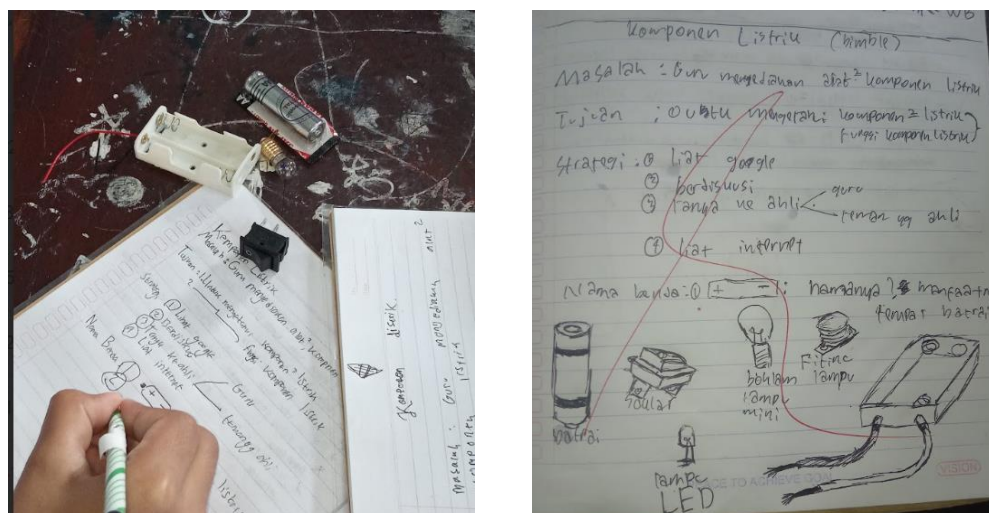 Komponen Listrik
Masalah : Guru mengedakan alat², komponen
Tujuan : Untuk mengetahui komponen² listrik
fungsi komponen listrik
Strategi ① Liat google
② Berdiskusi
③ Tanya ke ahli
Guru
④ Liat internet
Nama Benda
+ -
Komponen listrik
masalah : Guru mengedakan alat²
komponen listrik
Komponen Listrik (bimble)
Masalah : Guru mengedakan alat² komponen listrik
Tujuan : Untuk mengetahui komponen² listrik
fungsi komponen listrik
Strategi : ① liat google
② berdisusi
③ tanya ke ahli
guru
teman yg ahli
④ liat internet
Nama benda : ① + - : namanya manfaatn
tempat batrai
batrai
boulam
lampu
mini
Fiting
lampu
lampu
LED
VISION
TO ACHIEVE